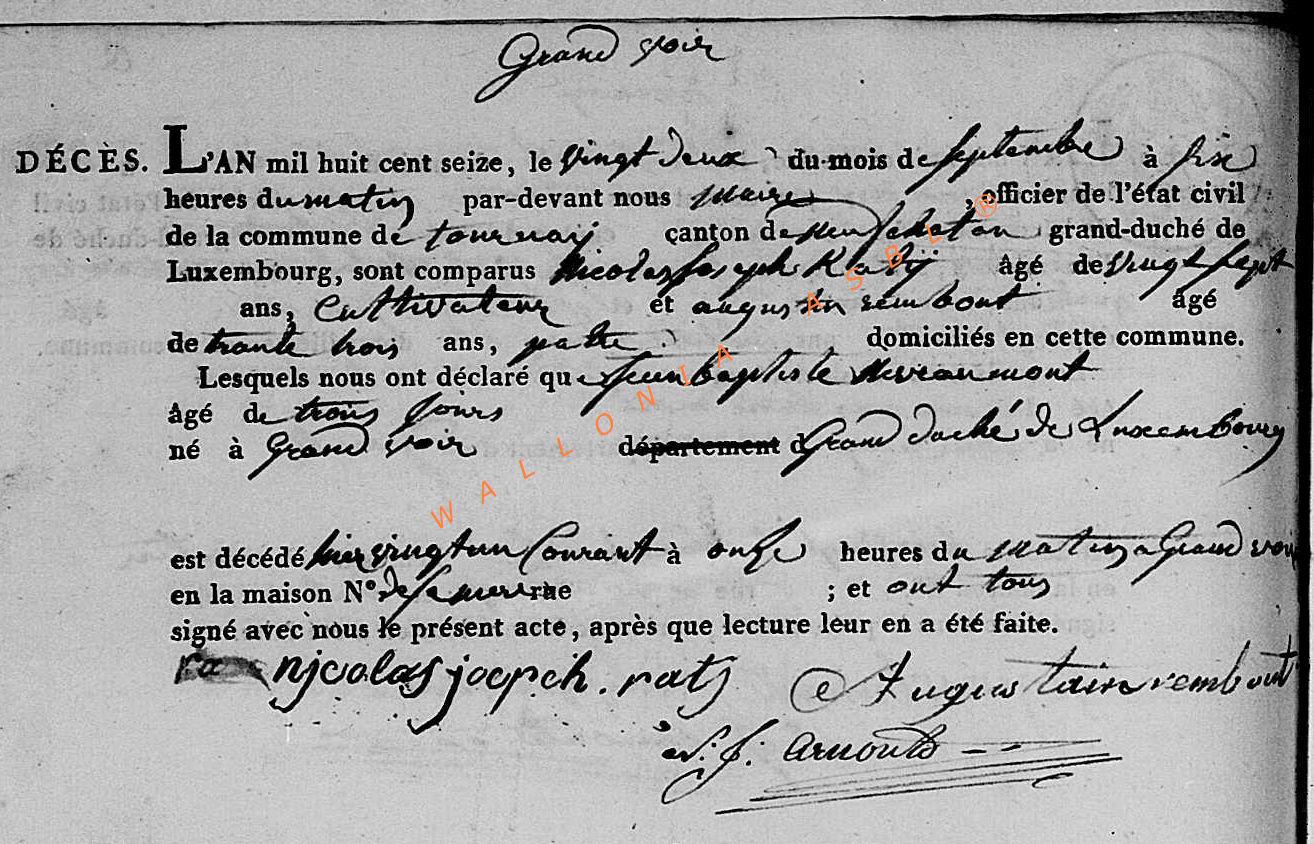 Grand voir
DÉCÈS. L'AN mil huit cent seize, le vingt deux du mois de septembre à six
heures du matin par-devant nous maire, officier de l'état civil
de la commune de tournay canton de neufchatau grand-duché de
Luxembourg, sont comparus Nicolas Joseph Raty âgé de vingt sept
ans, Cultivateur et augustin rembout âgé
de trante trois ans, patre domiciliés en cette commune.
Lesquels nous ont déclaré que jean baptiste Nivraumont
âgé de trois jours
né à Grand voir département d Grand duché de Luxembourg
est décédé hier vingt un Courant à onze heures du matin a Grand voir
en la maison N° de sa mere rue ; et ont tous
signé avec nous le présent acte, après que lecture leur en a été faite.
ra njcolas joepch. raty Augustain rembout
N. J. arnould
WALLONIA ASBL ®